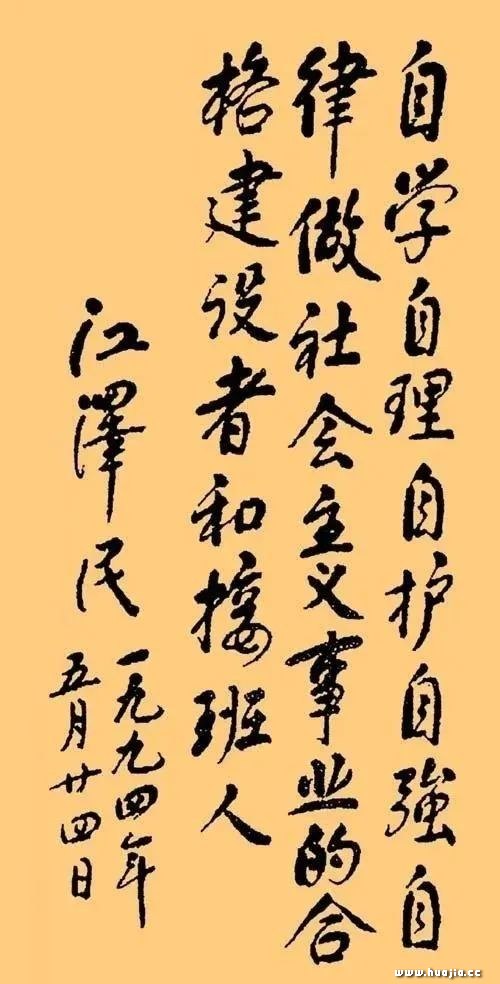 自学自理自护自強自
律做社会主义事业的合
格建设者和接班人
江澤民
一九九四年
五月廿四日
www.huajia.cc